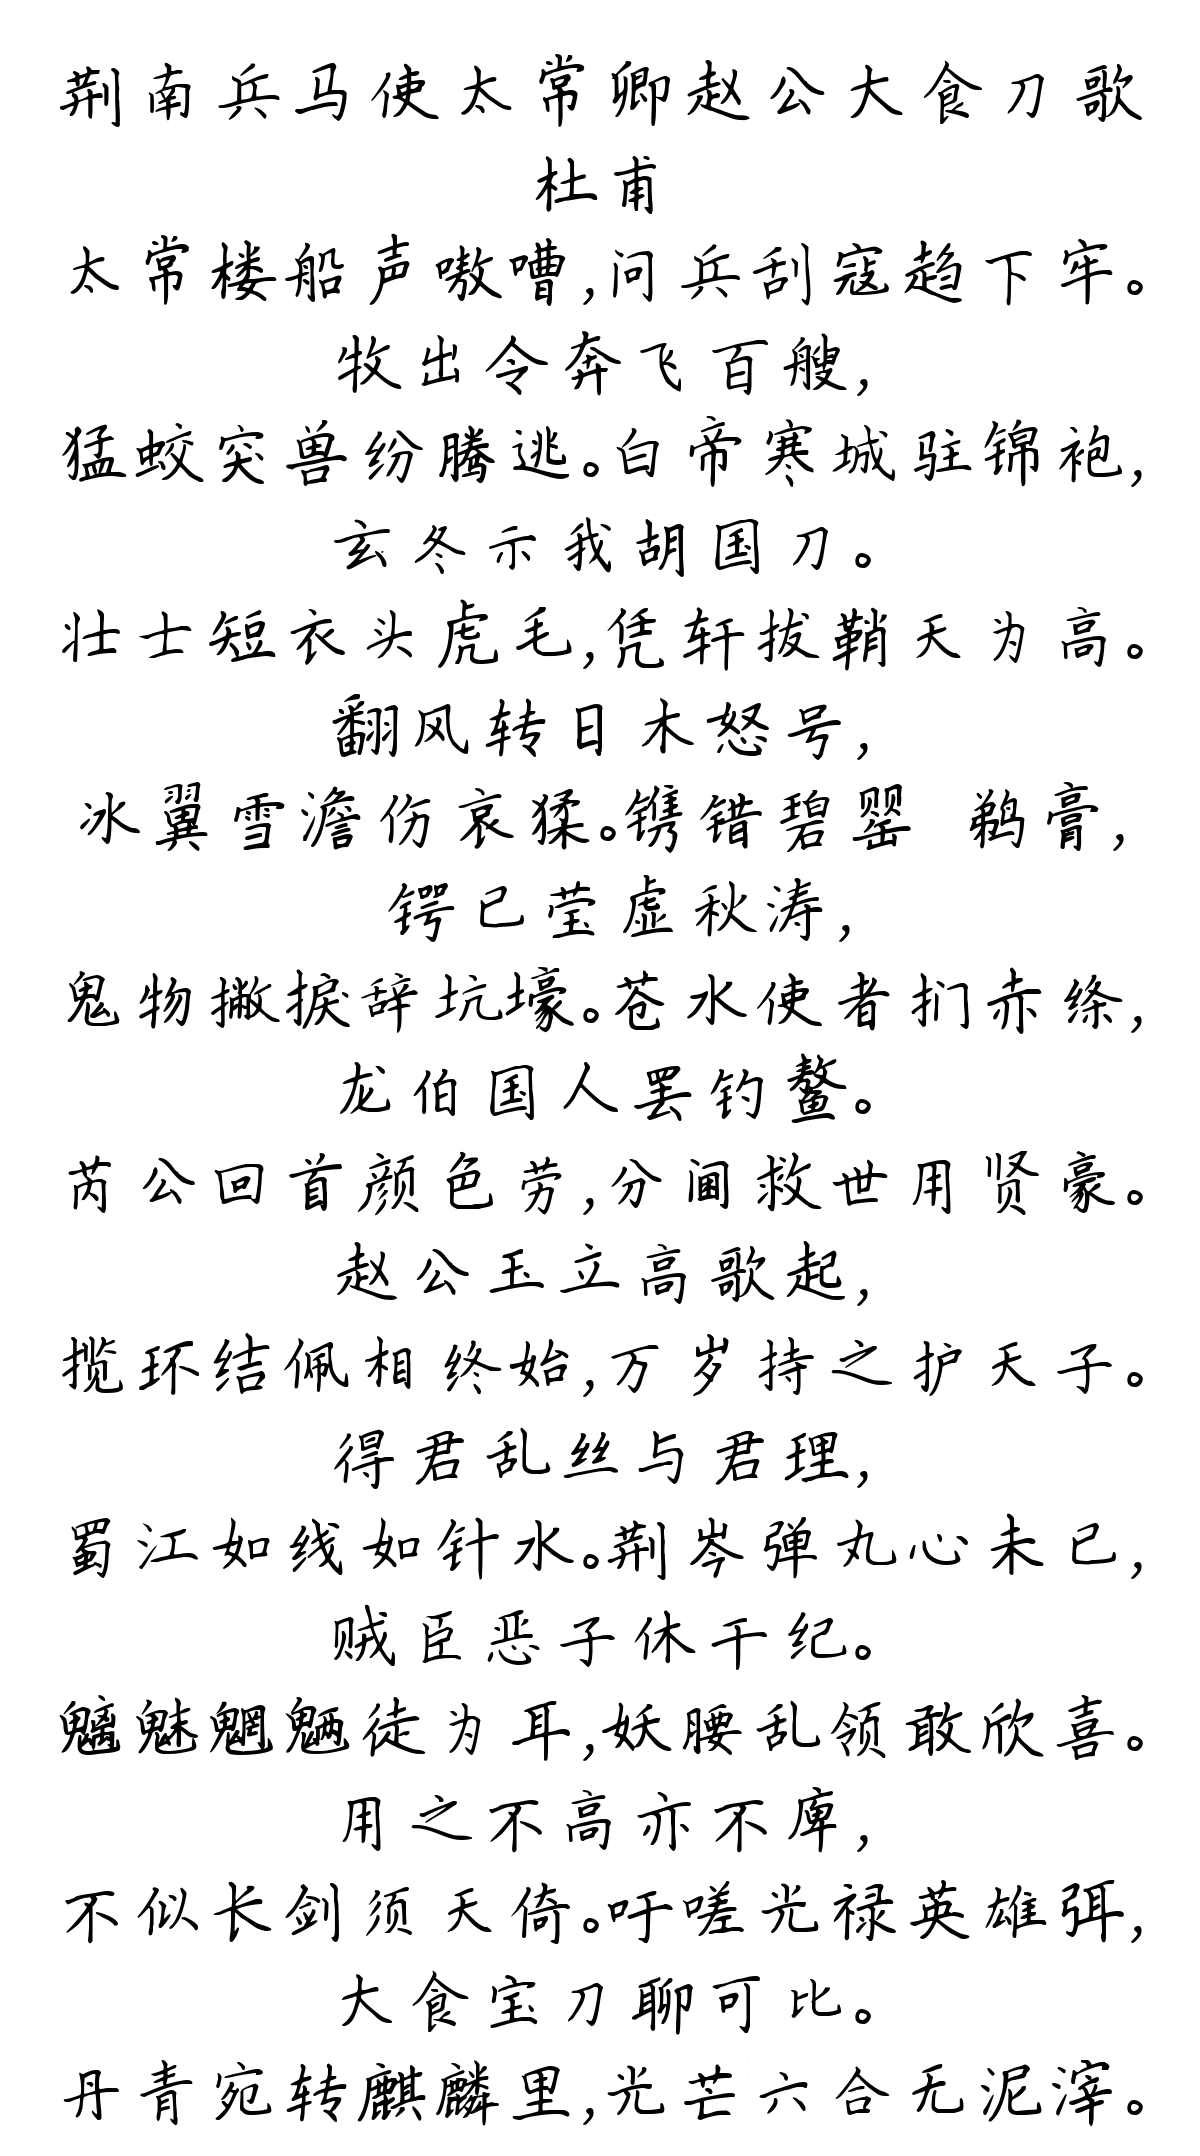 荆南兵马使太常卿赵公大食刀歌
杜甫
太常楼船声嗷嘈,问兵刮寇趋下牢。
牧出令奔飞百艘,
猛蛟突兽纷腾逃。白帝寒城驻锦袍,
玄冬示我胡国刀。
壮士短衣头虎毛,凭轩拔鞘天为高。
翻风转日木怒号,
冰翼雪澹伤哀猱。镌错碧罂 鹈膏,
锷已莹虚秋涛,
鬼物撇捩辞坑壕。苍水使者扪赤绦,
龙伯国人罢钓鳌。
芮公回首颜色劳,分阃救世用贤豪。
赵公玉立高歌起,
揽环结佩相终始,万岁持之护天子。
得君乱丝与君理,
蜀江如线如针水。荆岑弹丸心未已,
贼臣恶子休干纪。
魑魅魍魉徒为耳,妖腰乱领敢欣喜。
用之不高亦不庳,
不似长剑须天倚。吁嗟光禄英雄弭,
大食宝刀聊可比。
丹青宛转麒麟里,光芒六合无泥滓。